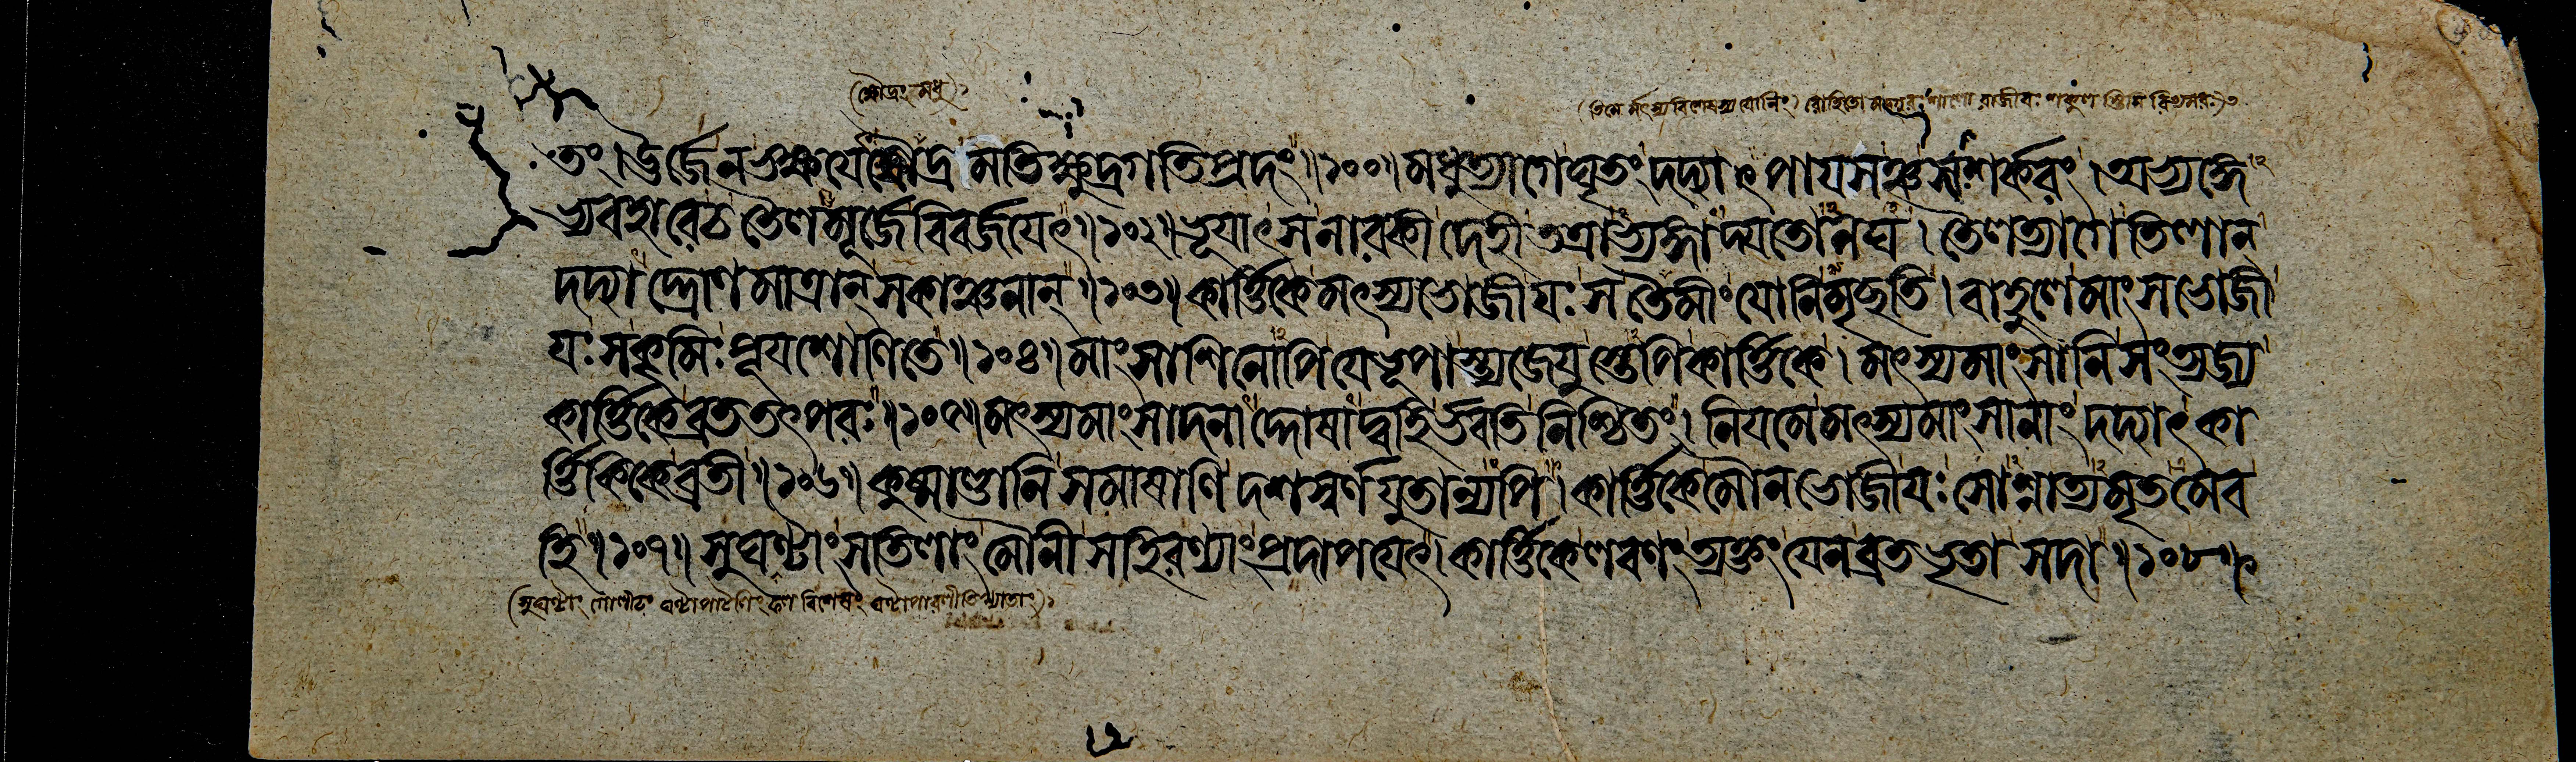 (ক্ষৌদ্রং মধু)১
(তিমে র্মৎস্য বিশেষস্য যোনিং) রোহিতো মদ্গুরঃ শালো রাজীবঃ শকুল স্তিমি রিত্যমরঃ)৩
তং। ঊর্জেন ভক্ষয়েৎ ক্ষৌদ্র মতিক্ষুদ্রগতিপ্রদং॥১০০॥ মধুত্যাগে ঘৃতং দদ্যাৎ পায়সঞ্চ সশর্করং। অভ্যঙ্গে
ভ্যবহারে চ তৈল মূর্জে বিবর্জয়েৎ॥১০২॥ ভূয়াৎ স নারকী দেহী তত্রাভ্যঙ্গা দ্যতো নঘ। তৈলত্যাগে তিলান
দদ্যা দ্দ্রোণ মাত্রান্ সকাঞ্চনান্॥১০৩॥ কার্ত্তিকে মৎস্যভোজী যঃ স তৈমীং যোনি মৃচ্ছতি। বাহুলে মাংসভোজী
যঃ স কৃমিঃ পূয়শোণিতে॥১০৪॥ মাংসাশিনোপি যে ভূপা স্ত্যজেয়ু স্তেপি কার্ত্তিকে। মৎস্যমাংসানি সংত্যজ্য
কার্ত্তিকে ব্রততৎপরঃ॥১০৫॥ মৎস্যমাংসাদনা দ্দোষা দ্বহি র্ভবতি নিশ্চিতং। নিয়মে মৎস্যমাংসানাং দদ্যাৎ কা
র্ত্তিকিকে ব্রতী॥১০৬॥ কুষ্মাণ্ডানি সমাষাণি দশস্বর্ণযুতান্যপি। কার্ত্তিকে মৌনভোজী যঃ সোশ্নাত্যমৃতমেব
হি॥১০৭॥ সুঘণ্টাং সতিলাং মৌনী সহিরণ্যাং প্রদাপয়েৎ। কার্ত্তিকে লবণং ত্যক্তং যেন ব্রতভৃতা সদা॥১০৮॥